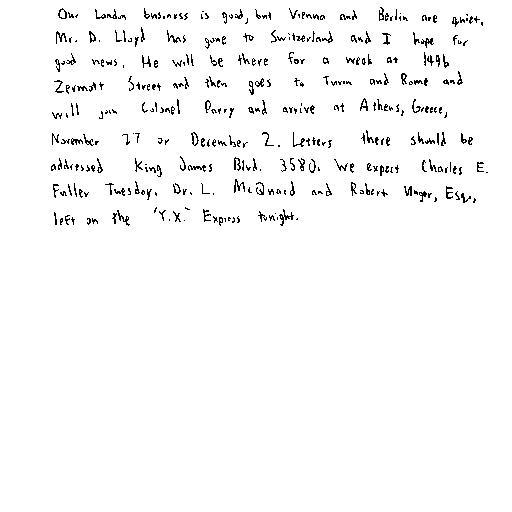 Our London business is good, but Vienna and Berlin are quiet.
Mr. D. Lloyd has gone to Switzerland and I hope for
good news. He will be there for a week at 1496
Zermott Street and then goes to Turin and Rome and
will join Colonel Parry and arrive at Athens, Greece,
November 27 or December 2. Letters there should be
addressed King James Blvd. 3580. We expect Charles E.
Fuller Tuesday. Dr. L. McQuaid and Robert Unger, Esq.,
left on the "Y.X." Express tonight.